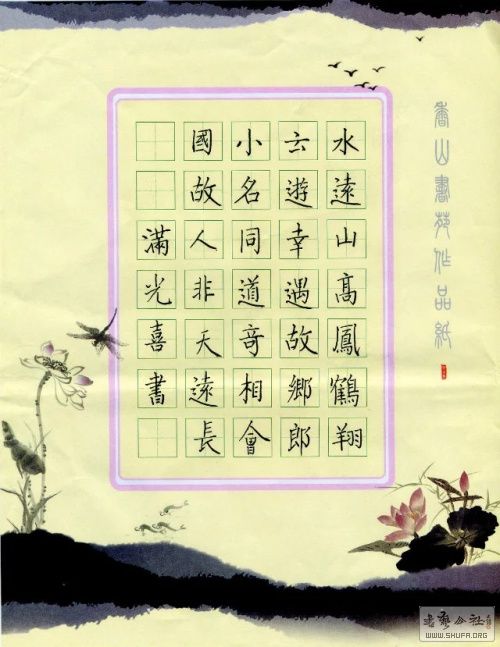 香山書苑作品紙
水遠山高鳳鶴翔
云遊幸遇故鄉郎
小名同道奇相會
國故人非天遠長
滿光喜書
書藝公社
WWW.SHUFA.ORG